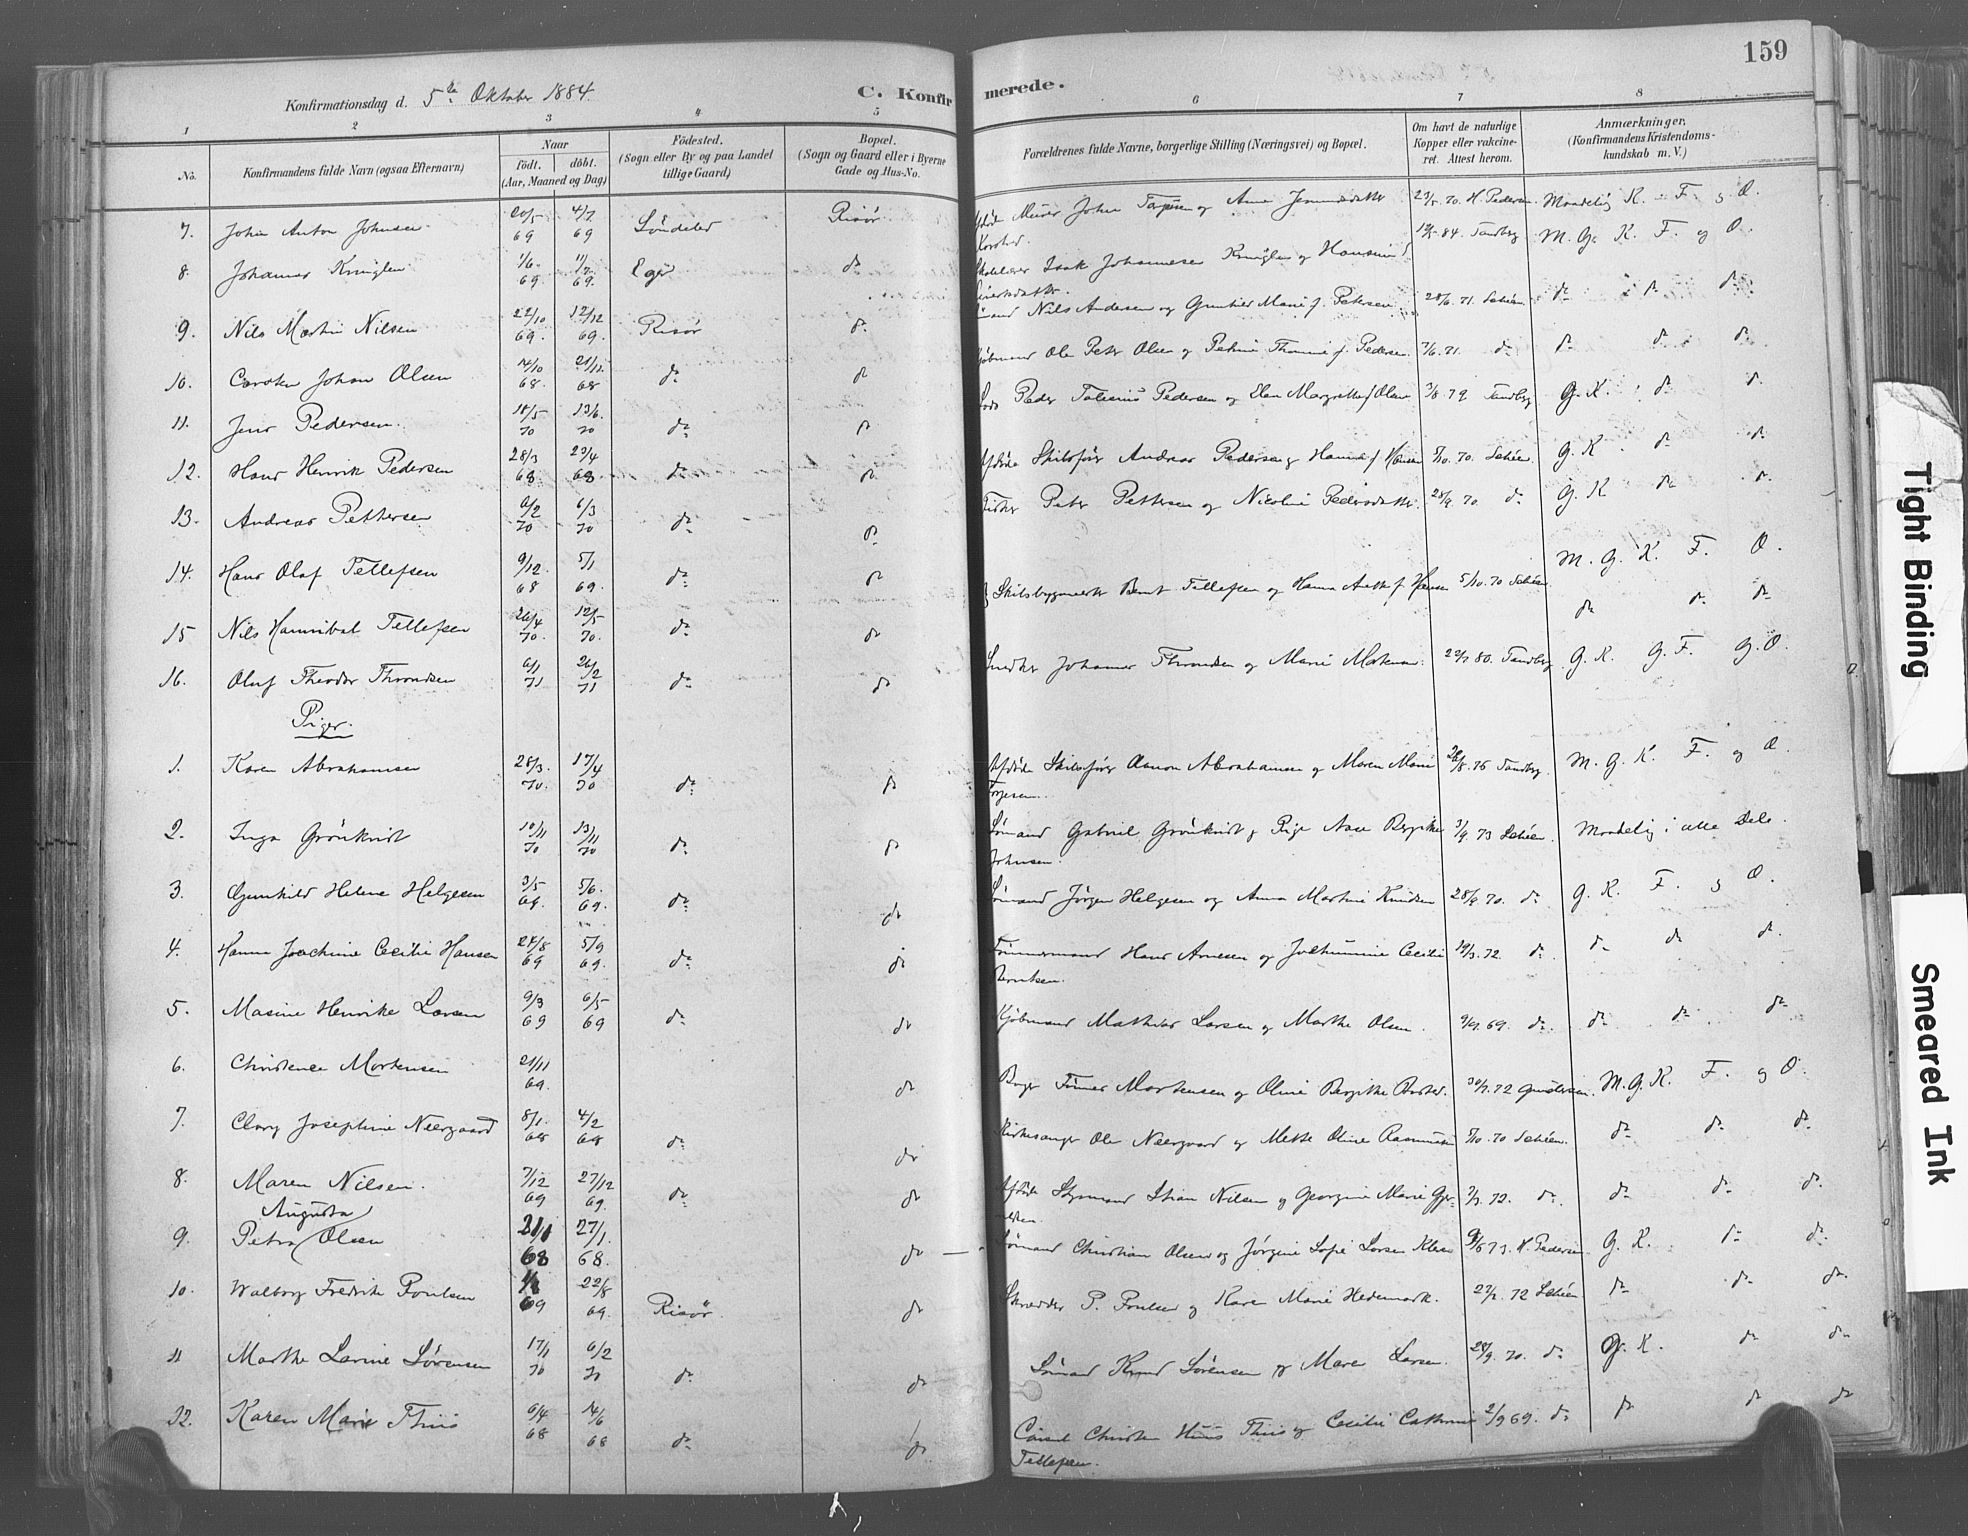 159
Konfirmationsdag d. 5te Oktober 1884.
C. Konfirmerede.
1 2 3 4 5 6 7 8
No.
Konfirmandens fulde Navn (ogsaa Efternavn)
Naar
födt. döbt.
(Aar, Maaned og Dag)
Födested.
(Sogn eller By og paa Landet
tillige Gaard)
Bopæl.
(Sogn og Gaard eller i Byerne
Gade og Hus-No.
Forældrenes fulde Navne, borgerlige Stilling (Næringsvei) og Bopæl.
Om havt de naturlige
Kopper eller vakcine-
ret. Attest herom.
Anmærkninger.
(Konfirmandens Kristendoms-
kundskab m. V.)
7. John Anton Johnsen 20/5 69 4/7 69 Söndeled Risör Murer John og Anne 70. H. Pedersen Maadelig K. F. og O.
8. Johannes Kringlen 1/6 69 11/7 69. Eger do Isak Johannesen Kringlen og 84. Tandberg M. G. K. F. og O.
9. Nils Martin Nilsen 22/10 69. 12/12 69. Risör do Nils Andersen og Gunhild Marie f. Petersen 28/6 71. Schéen do do do
10. Carsten Johan Olsen 14/10 68. 21/12 68 do do Kjöbmand Ole Peter Olsen og Petrine Thomine f. Pedersen 7/6. 71. do do do do
11. Jens Pedersen. 18/5 70 13/6. 70 do do Lods Peder Pedersen og Elen Margrethe f Olsen 3/8 79 Tandberg G. K. do do
12. Hans Henrik Pedersen 28/3 68 23/4 68 do do Afdöde Skibsförer Andreas Pedersen og Hanna f Hansen 70. Schéen. G. K. do do
13. Andreas Pettersen 9/2 70 6/3 70 do do Fisker Peter Pettersen og Nicoline Pedersdatter 28/9 70 do G. K do do
14. Hans Olaf Tellefsen 9/12. 68 5/1 69. do do Skibsbygmester Bernt Tellefsen og Hanna Anette f. Hansen 5/10. 70 Schéen M. G. K. F. O.
15 Nils Hannibal Tellefsen 26/4 70. 12/5 70. do do do do do
16. Oluf Theodor Throndsen 6/1 71 26/2 71 do do Snedker Johannes Throndsen og Marie 80. Tandberg G. K. G. F. G. O.
Piger.
1. Karen Abrahamsen 28/3. 70. 17/4 70 do do Afdöde Skibsförer Aanon Abrahamsen og Maren Marie
26/8. 75 Tandberg. M. G. K. F. og O.
2. Inga Grönkvist 10/11 70 13/11 70 do do Sömand Gabriel Grönkvist og Pige Aase Bergitte
Johnsen. 3/9. 73 Schéen. Maadelig i alle Dele.
3. Gunhild Helene Helgesen 3/5 69. 5/6. 69. do do Sömand Jörgen Helgesen og Anna Martine Knudsen 28/9 70. do G. K. F. og O.
4. Hanna Joachine Cecilie Hansen 27/8 69 5/9 69. do do Tömmermand Hans Arnesen og Cecilie
Berntsen. 19/3. 72 do do do do
5. Masine Henrike Larsen 9/3 69 6/5 69 do do Kjöbmand Mathias Larsen og Marthe Olsen. 9/9. 69. do do do do
6. Christence Mortensen 21/11 69. do Mortensen og Oline Bergitte 72 Gundersen. M. G. K. F. og O.
7. Clary Josephine Neergaard 8/1. 68 4/2 68 do do Kirkesanger Ole Neergaard og Mette Oline Rasmussen 70 Schéen. do do do
8. Maren Nilsen. 7/12 69 27/12 69. do do Afdöde Styrmand Stian Nilsen og Georgine Marie
72. do do do do
9. Petra Augusta Olsen 21/1 68 27/1. 68. do Sömand Christian Olsen og Jörgine Sofie Larsen 73. H. Pedersen G. K. do do
10. Walborg Fredrike Poulsen 69 22/8 69. Risör. do Skrædder P. Poulsen og Karen Marie Hedemark. 72 Schéen do do do
11 Marthe Lovise Sörensen 17/1 70 6/2 70 do do Sömand Knud Sörensen og Maren Larsen. 28/9. 70. do G. K. do do
12. Karen Marie Thiis 6/4 68 14/6 68 do do Consul Christen Huus Thiis og Cecilie Cathrine
Tellefsen. 2/9 69. do do do do
Tight Binding
Smeared Ink